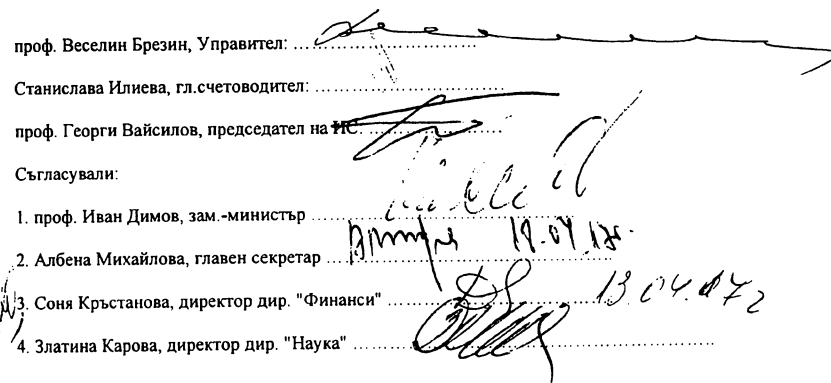 проф. Веселин Брезин, Управител: ..............................
Станислава Илиева, гл.счетоводител: ..............................
проф. Георги Вайсилов, председател на ИС. ..............................
Съгласували:
1. проф. Иван Димов, зам.-министър ..............................
2. Албена Михайлова, главен секретар ..............................
3. Соня Кръстанова, директор дир. "Финанси" .............................. 13.04.17г
4. Златина Карова, директор дир. "Наука" ..............................